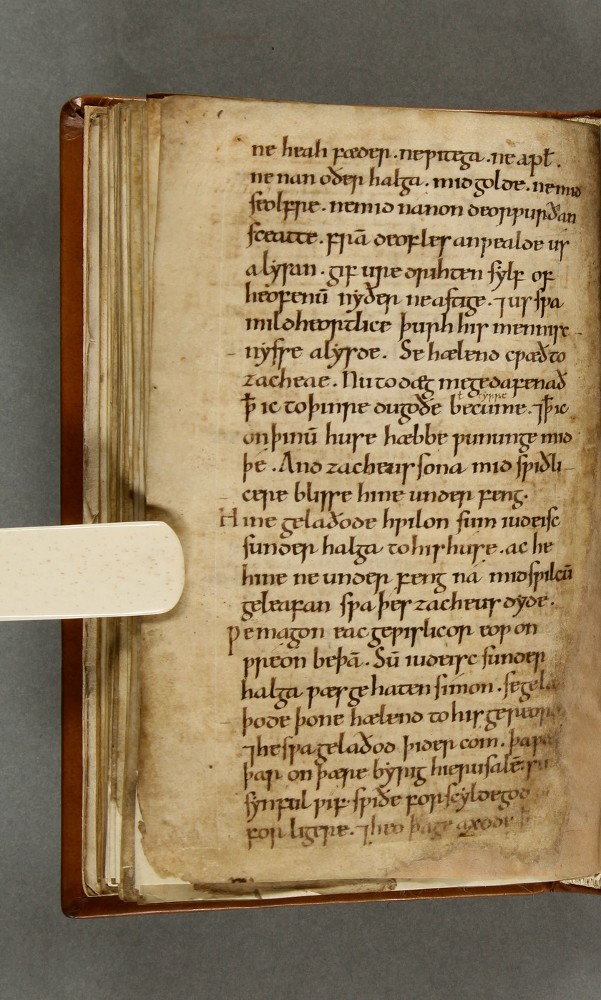 ne heah fæder. ne ƿitega. ne apƚ.
ne nan oðer halga. mid golde. ne mid
seolfre. ne mid nanon deorƿurðan
sceatte. frā deofles anƿealde us
alysan. gif ure drihten sylf of
heofenū nyðer ne astige. ⁊ us sƿa
mildheortlice þurh his mennisc
nysse alysde. Se hælend cƿæð to
zacheae. Nu to dæg me gedafenað
ꝥ ic to þinre dugoðe becume. ⁊ ꝥ ic
on þinū huse hæbbe ƿununge mid
þe. And zacheus sona mid sƿiðli
cere blisse hine underfeng.
Hine gelaðode hƿilon sum iudeisc
sunderhalga to his huse. ac he
hine ne underfeng na mid sƿilcū
geleafan sƿa þes zacheus dyde.
ƿe magon eac geƿislicor eoƿ on
ƿreon be þā. Sū iudeisc sunder
halga ƿæs gehaten simon. se gela
þode þone hælend to his
⁊ he sƿa gelaðod þider com. þa ƿæs
þær on þære byrig hierusalē
synful ƿif. sƿiðe forscyldegod
for ligere. ⁊ heo þa geaxode